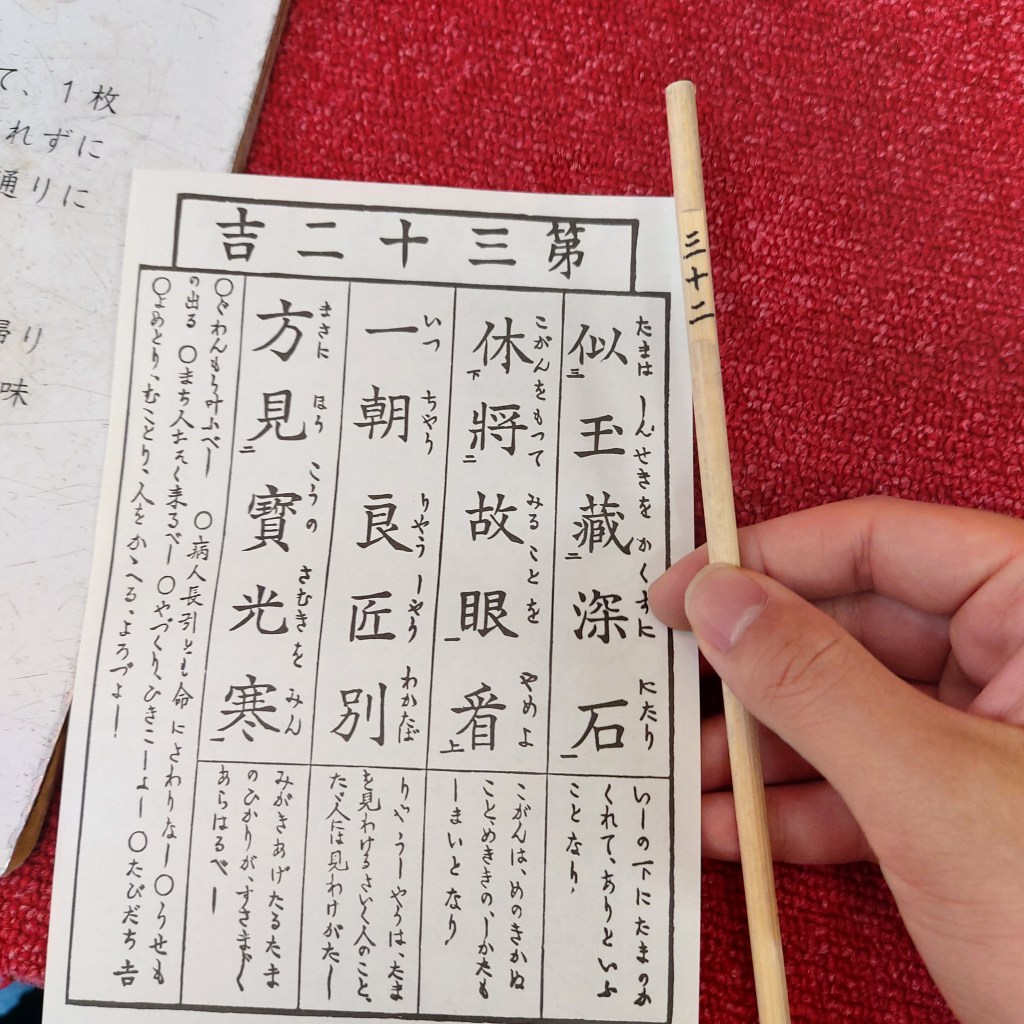 て、1枚
れずに
通りに
帰り
味
第三十二吉
三十二
似玉藏深石
たまは しんせきを かくすに にたり
三 二 一
休將故眼看
こがんをもつて みることを やめよ
下 二 一 上
一朝良匠別
いつ ちやう りやう しやう わかたば
方見寶光寒
まさに ほう こうの さむきを みん
二 一
いしの下にたまのか
くれて、ありといふ
ことなり、
こがんは、めのきかぬ
こと、めききの、しかたも
しまいとなり
りやうしやうは、たま
を見わけるさいく人のこと、
たゞ人には見わけがたし
みがきあげたるたま
のひかりが、すさまじく
あらはるべし
○ぐわんもうかふべし ○病人長引とも命にさわりなし○うせも
の出る ○まち人おそく来るべし ○やづくりひきこしよし ○たびだち吉
○よめとり、むことり、人をかゝへる、よろづよし